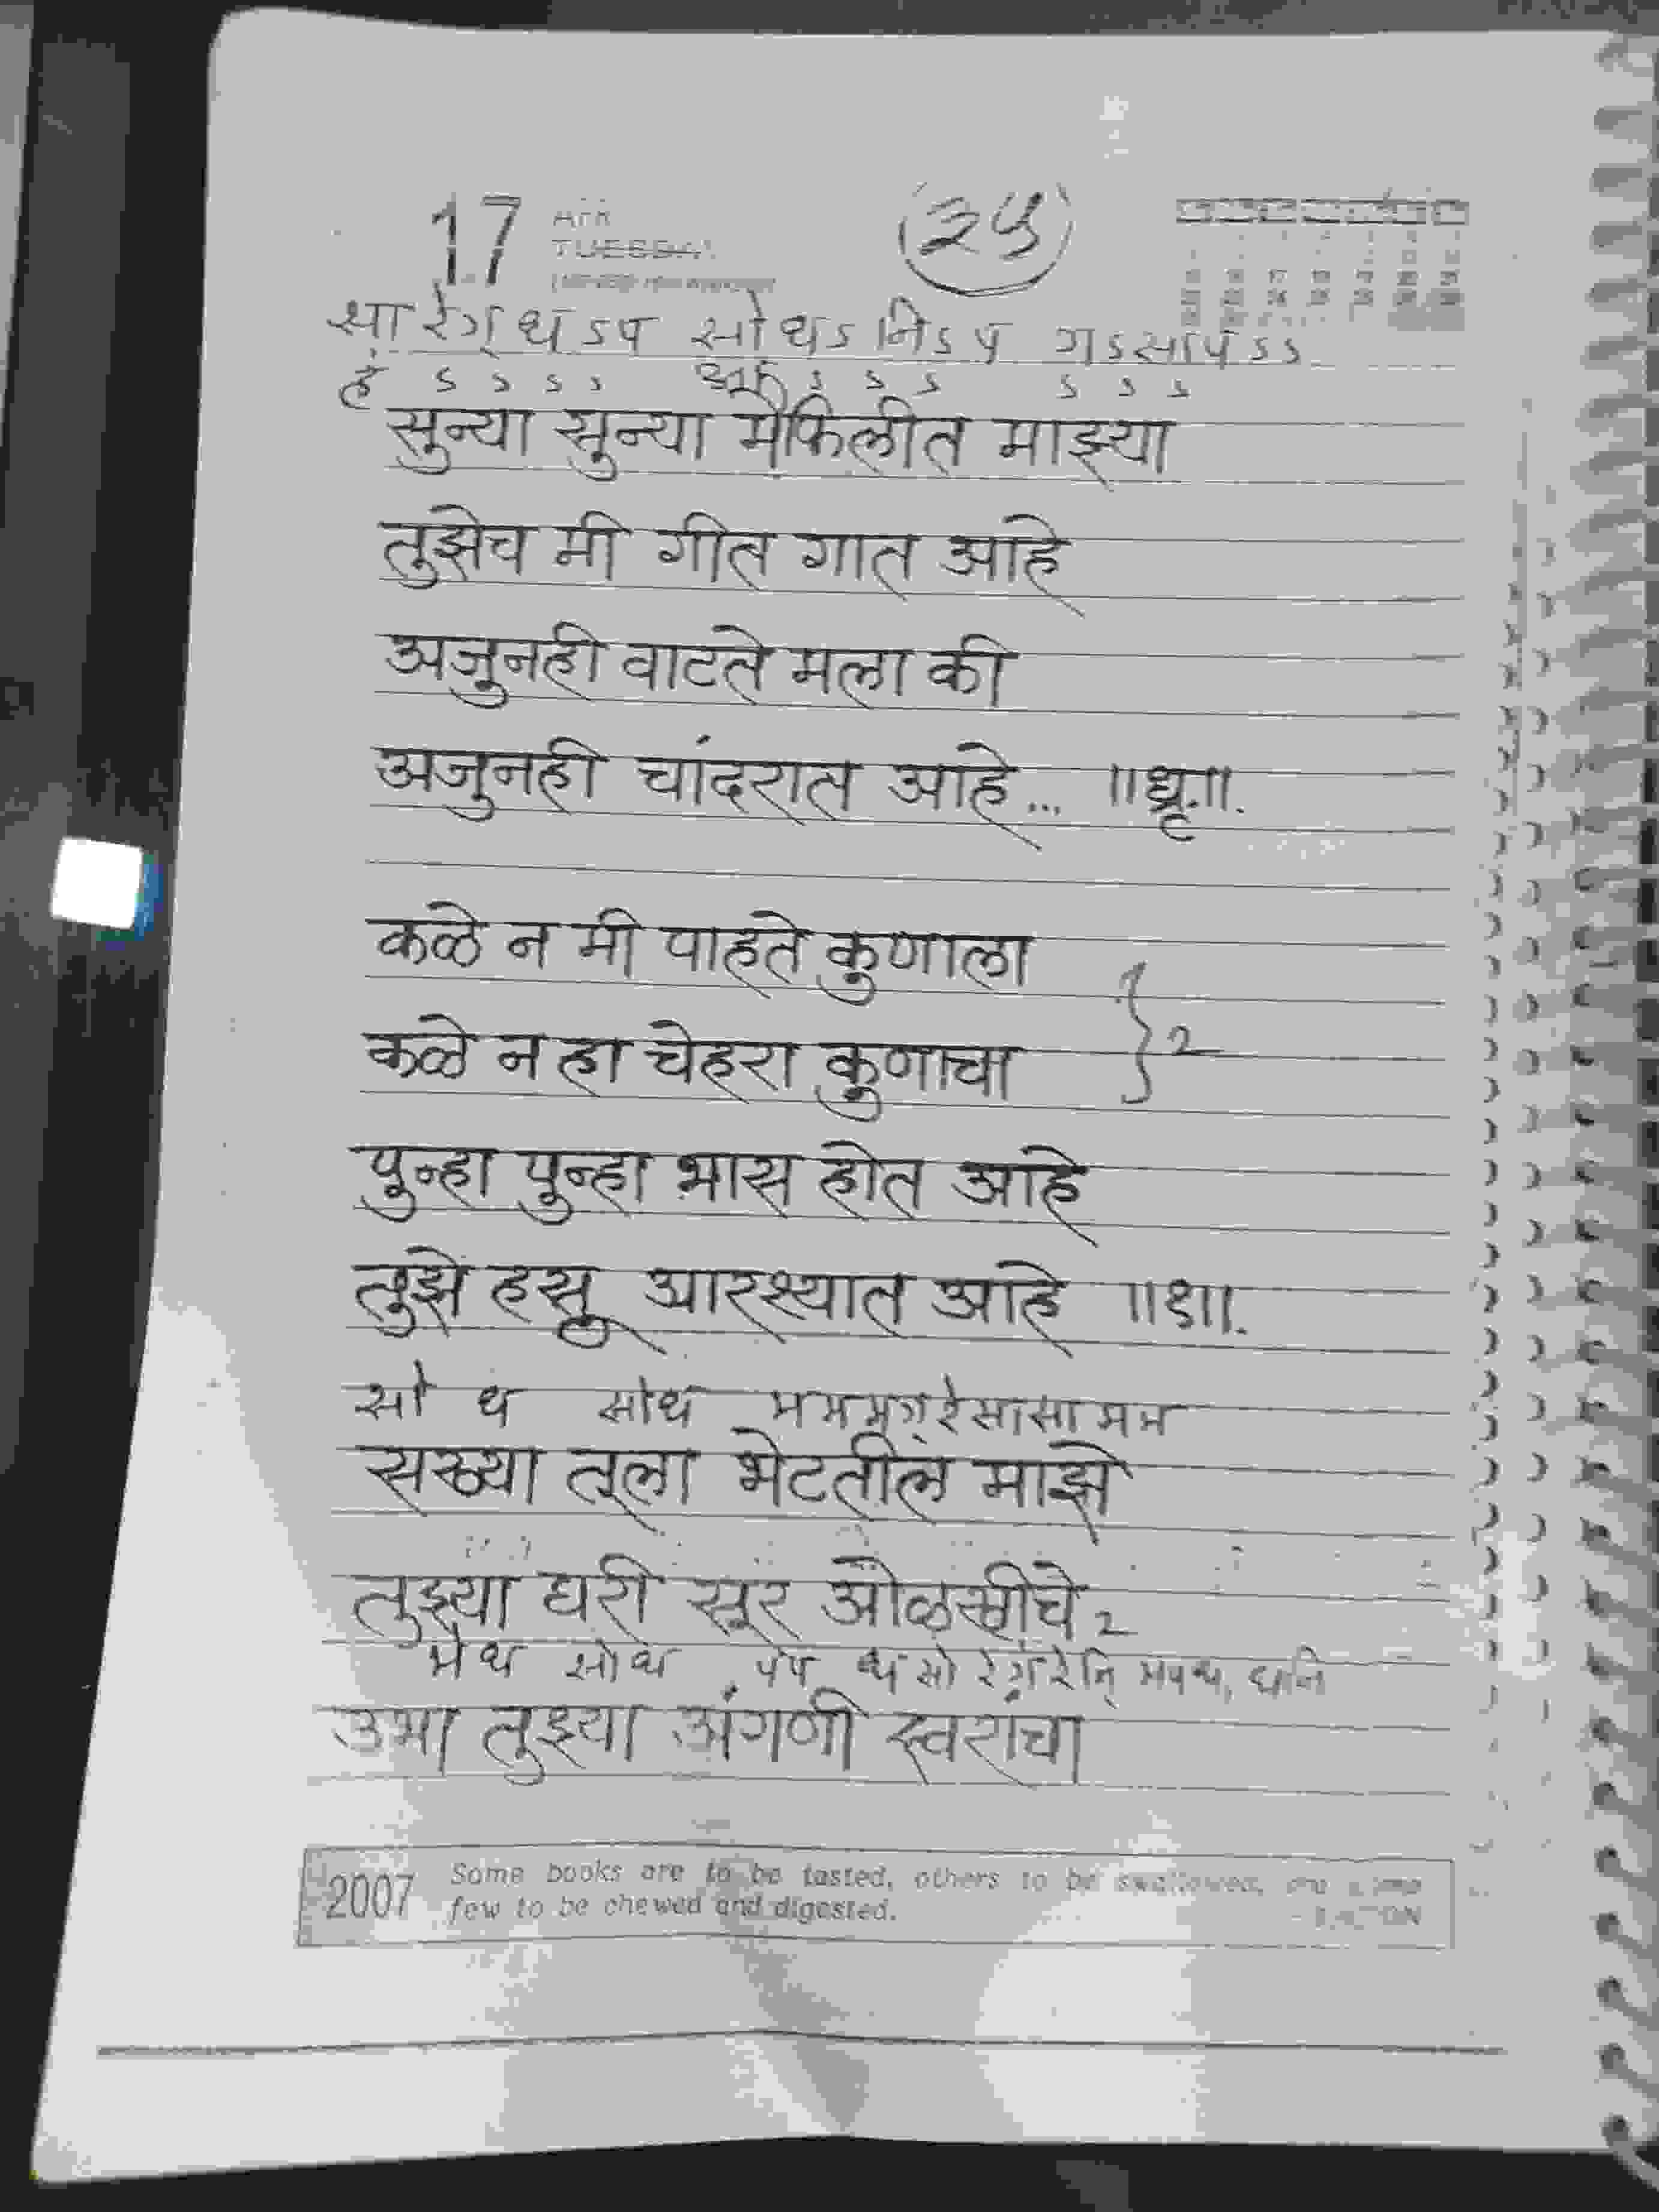 17 APR
TUESDAY
२५
सा रे ग् ध ऽ प सां ध ऽ नि ऽ प ग ऽ सा प ऽ ऽ
ऽ ऽ ऽ ऽ ऽ ऽ ऽ ऽ ऽ ऽ
सुन्या सुन्या मैफिलीत माझ्या
तुझेच मी गीत गात आहे
अजुनही वाटते मला की
अजुनही चांदरात आहे... ॥धृ.॥.
कळे न मी पाहते कुणाला
कळे न हा चेहरा कुणाचा } 2
पुन्हा पुन्हा भास होत आहे
तुझे हसू आरश्यात आहे ॥१॥.
सां ध सांध म म म ग् रे सा सा म म
सख्या तूला भेटतील माझे
तुझ्या घरी सूर ओळखीचे 2
म ध सां ध प प ध सां रें गं रें नि म प ध, ध नि
उभा तुझ्या अंगणी स्वरांचा
2007 Some books are to be tasted, others to be swallowed, and some
few to be chewed and digested.